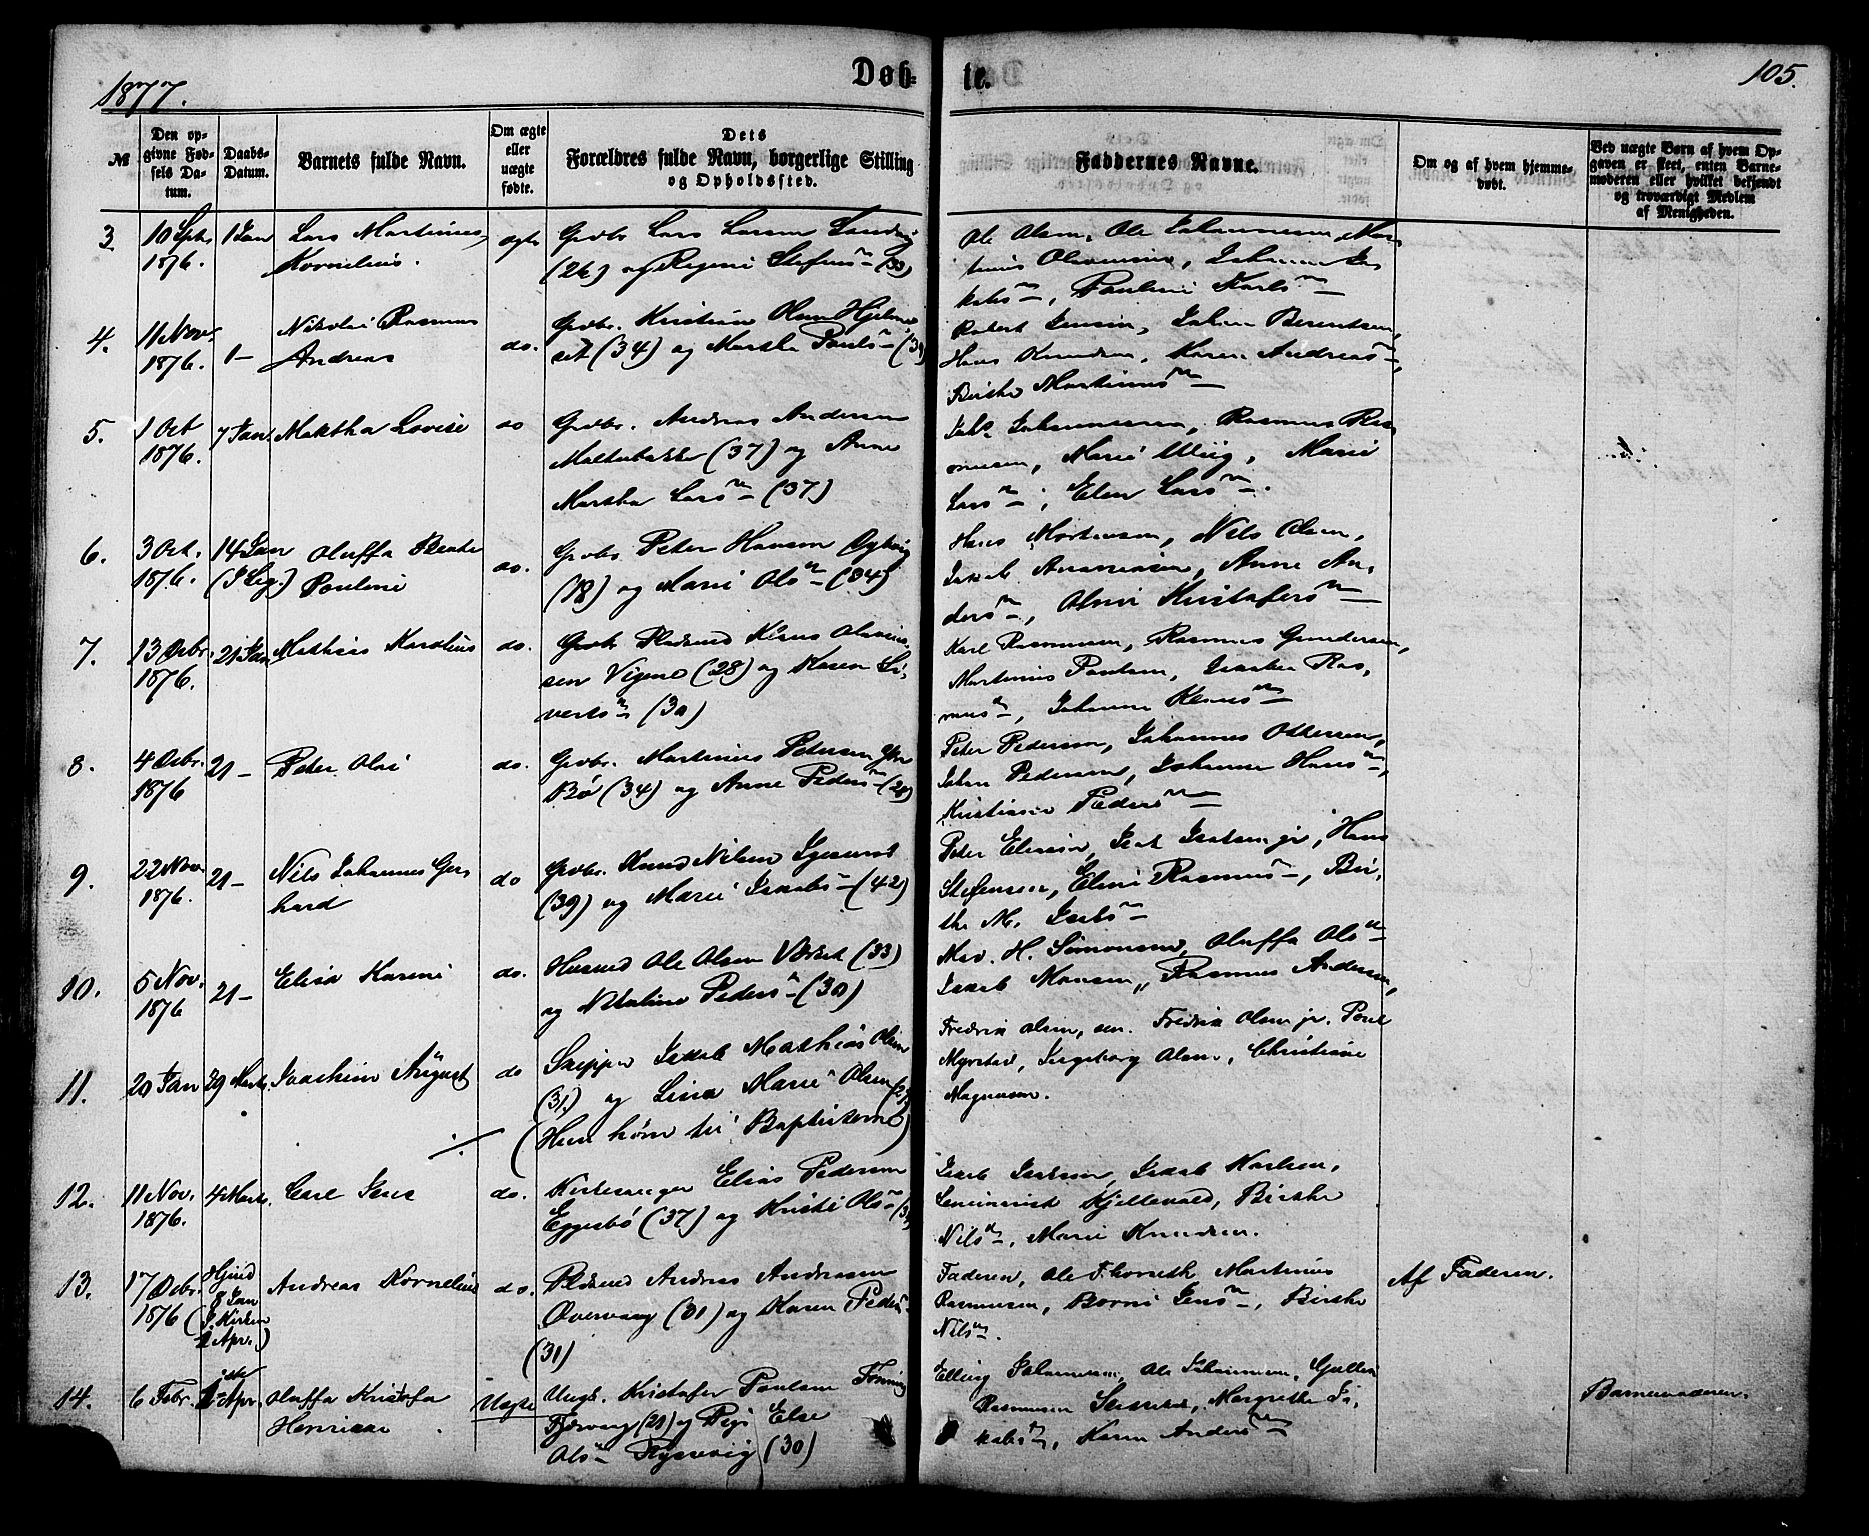 1877.
Døb-
te.
105.
№
Den op-
givne Fød-
sels Da-
tum.
Daabs-
Datum.
Barnets fulde Navn.
Om ægte
eller
uægte
fødte.
Dets
Forældres fulde Navn, borgerlige Stilling
og Opholdssted.
Faddernes Navne.
Om og af hvem hjemme-
døbt.
Ved uægte Børn af hvem Op-
gaven er skeet, enten Barne-
moderen eller hvilket bekjendt
og troværdigt Medlem
af Menigheden.
3
10 Sptr
1876.
1 Jan
Lars Martinus
Kornelius.
ægte
Grdbr Lars Larsen
(26) og Regine Stefens n (33)
Ole Olsen, Ole Johannesen, Mar
tinus Olsen, Johanne Ja
kobs n, Pauline Karls n
4.
11 Nov.
1876.
1 -
Nikolai Rasmus
Andreas
do.
Grdbr. Kristian Olsen Hjelme
set (34) og Martha Pouls n
Robert Jensen, Johan Berentsen,
Hans Knudsen, Karen Andreas n,
Birthe Martinus n
5.
1 Oct
1876.
7 Jan.
Maktha Lovise
do
Grdbr. Andreas Andersen
Moltubakke (37) og Anne
Martha Lars n (37)
Jakob Johannessen, Rasmus Ras
musen, Marie Wiig, Marie
Lars n, Elen Lars n.
6.
3 Oct.
1876.
14 Jan
(I Lig.)
Oluffa Beate
Pauline
do.
Grdbr Peter Hansen
(18) og Marie Ols n (34)
Hans Mortensen, Nils Olsen,
Jakob Ananiasen, Anne An,
ders n, Oline Kristofers n
7.
13 Decbr.
1876.
21 Jan
Mathias Karolius
do.
Pladsmd Klaus Olavus
sen Vigene (28) og Karen Si,
verts n (30)
Karl Rasmussen, Rasmus Gundersen,
Martinus Paulsen, Ras,
mus n, Johanne Klaus n
8.
4 Decbr.
1876
21 -
Peter Olai
do.
Grdbr. Martinus Petersen Ytre
Bø (34) og Anne Peders n (28)
Peter Pedersen, Johannes Ottersen,
Johan Pedersen, Johanne Hans n,
Kristiane Peders n
9.
22 Nov.
1876.
21 -
Nils Johannes Ger
hard
do
Grdbr. Knud Nilsen Igesund
(39) og Marie Jakobs n (42)
Peter Eliasen, Isak Isaksen jr, Hans
Stefensen, Eline Rasmus n, Bir,
the M. Jakobs n
10.
5 Nov.
1876
21 -
Elisa Karine
do.
Husmd Ole Olsen (33)
og Nikoline Peders n (30)
H. Simonsen, Oluffa Ols n
Jakob Monsen, Rasmus Andersen,
11.
20 Jan
29 Marts.
Joachim August
do
Skipper Jakob Mathias Olsen
(31) og Lina Marie Olsen
(Hun hører til Baptisterne)
Fredrik Olsen, sen. Fredrik Olsen jr. Poul
Myrstad, Ingeborg Olsen, Christiane
Magnusen.
12.
11 Nov.
1876.
4 Marts.
Carl Jens
do.
Kirkesanger Elias Pedersen
Eggesbø (37) og Kristi Ols n
Jakob Karlsen,
Seminarist Kjellevold, Birthe
Nils n, Marie Knudsen.
13.
17 Decbr.
1876
Hjmd
8 Jan
(I Kirken
2 Apr.)
Andreas Kornelius
do.
Pldsmd Andreas Andreasen
Overvaag (31) og Karen Peders
(31)
Faderen, Ole Flovseth, Martinus
Rasmusen, Jens n, Birthe
Nils n.
Af Faderen.
14.
6 Febr.
2 Apr.
Oluffa Kristofa
Henrikke
Uægte
Ungk. Kristofer Paulsen
(21) og Pige Else
Ols n (30)
Elling Johannesen, Ole Johannesen,
Rasmusen, Margrethe Ja,
kobs n, Karen Anders n
Barnemoderen.